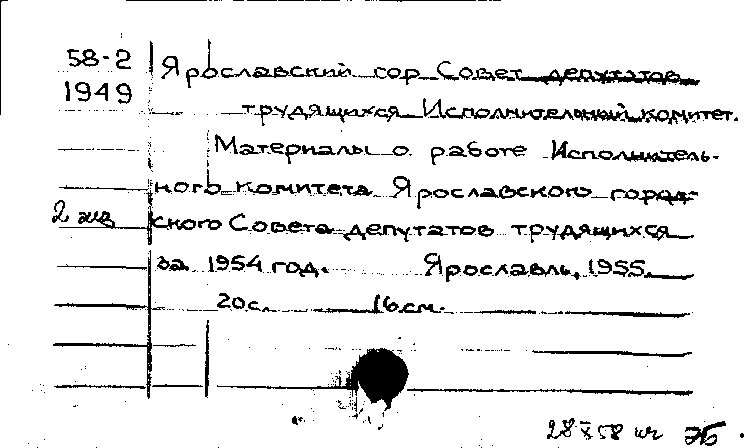 58-2
1949
Ярославский гор. Совет депутатов
трудящихся Исполнительный комитет.
Материалы о работе Исполнитель-
ного комитета Ярославского город-
2 экз
ского Совета депутатов трудящихся
за 1954 год. Ярославль, 1955.
20с. 16см.
28 X 58